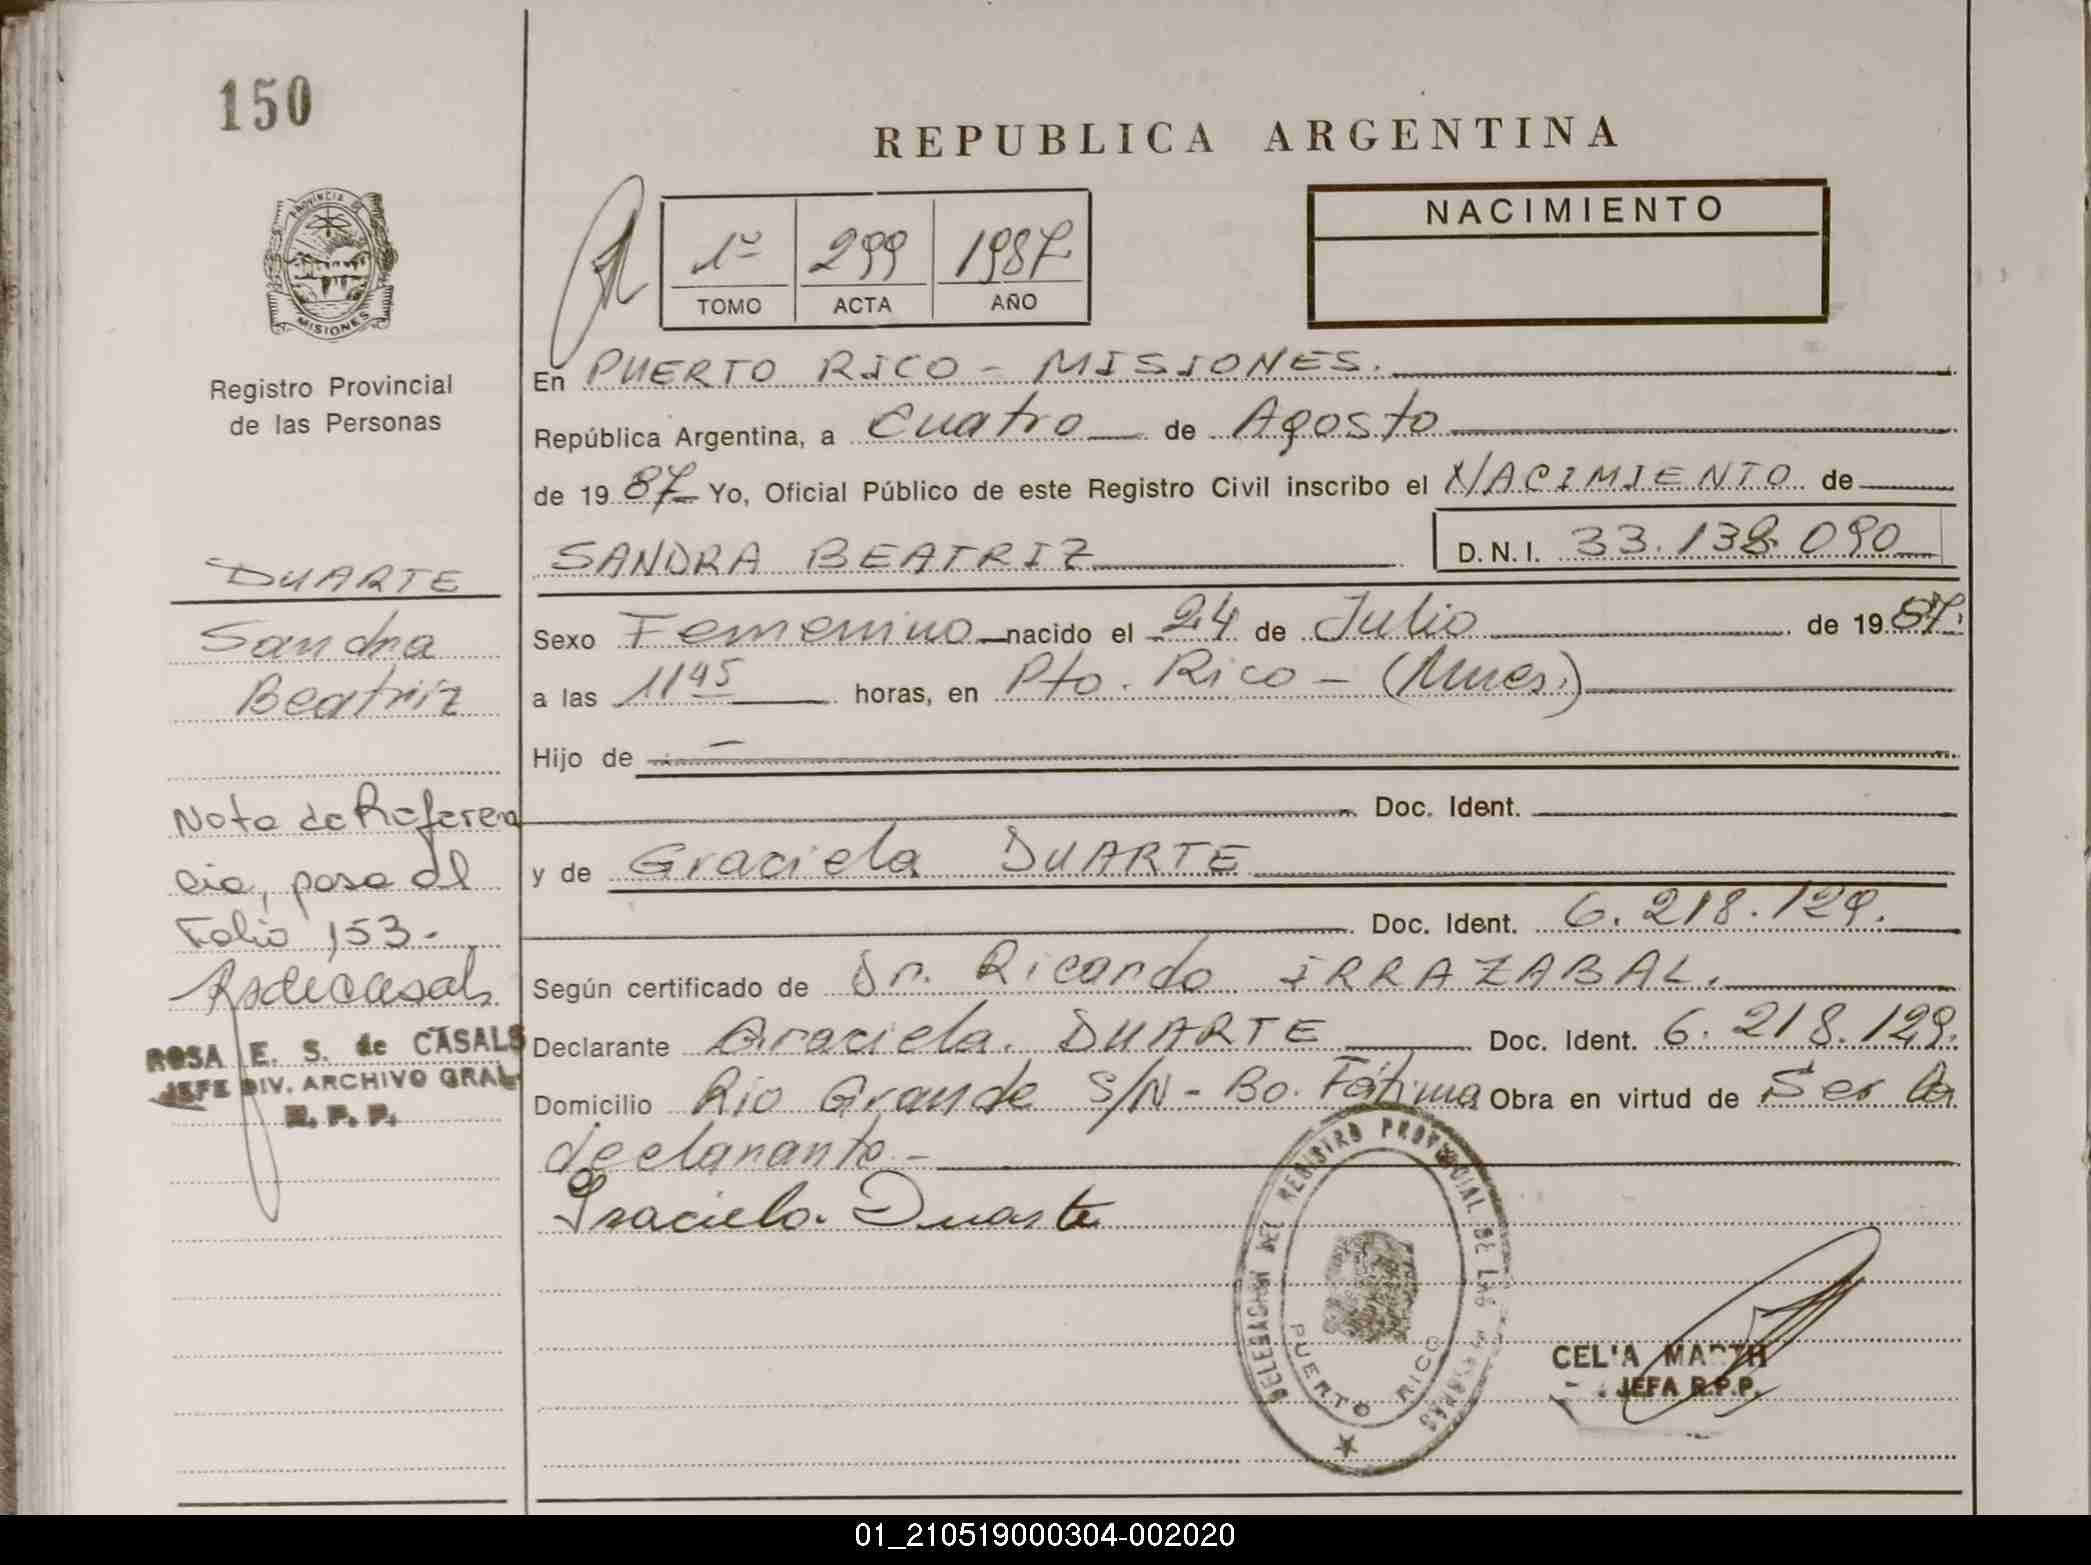 150
REPUBLICA ARGENTINA
PROVINCIA DE
MISIONES
Registro Provincial
de las Personas
1º 299 1987
TOMO ACTA AÑO
NACIMIENTO
En PUERTO RICO - MISIONES.
República Argentina, a Cuatro de Agosto
de 1987 Yo, Oficial Público de este Registro Civil inscribo el NACIMIENTO de
SANDRA BEATRIZ D.N.I. 33.138.090
Sexo Femenino nacido el 24 de Julio de 1987.
a las 11 45 horas, en Pto. Rico - (Mnes.)
Hijo de
Doc. Ident.
y de Graciela DUARTE
Doc. Ident. 6.218.129.
Según certificado de Dr. Ricardo IRRAZABAL.
Declarante Graciela DUARTE Doc. Ident. 6.218.129.
Domicilio Río Grande S/N - Bo. Fátima Obra en virtud de Ser la
declarante -
Graciela Duarte
DELEGACION DEL REGISTRO PROVINCIAL DE LAS PERSONAS
PUERTO RICO
CELIA
JEFA R.P.P.
DUARTE
Sandra
Beatriz
Nota de Referen
cia, pasa al
Folio 153.-
ROSA E. S. de CASALS
JEFE DIV. ARCHIVO GRAL
R. P. P.
01_210519000304-002020